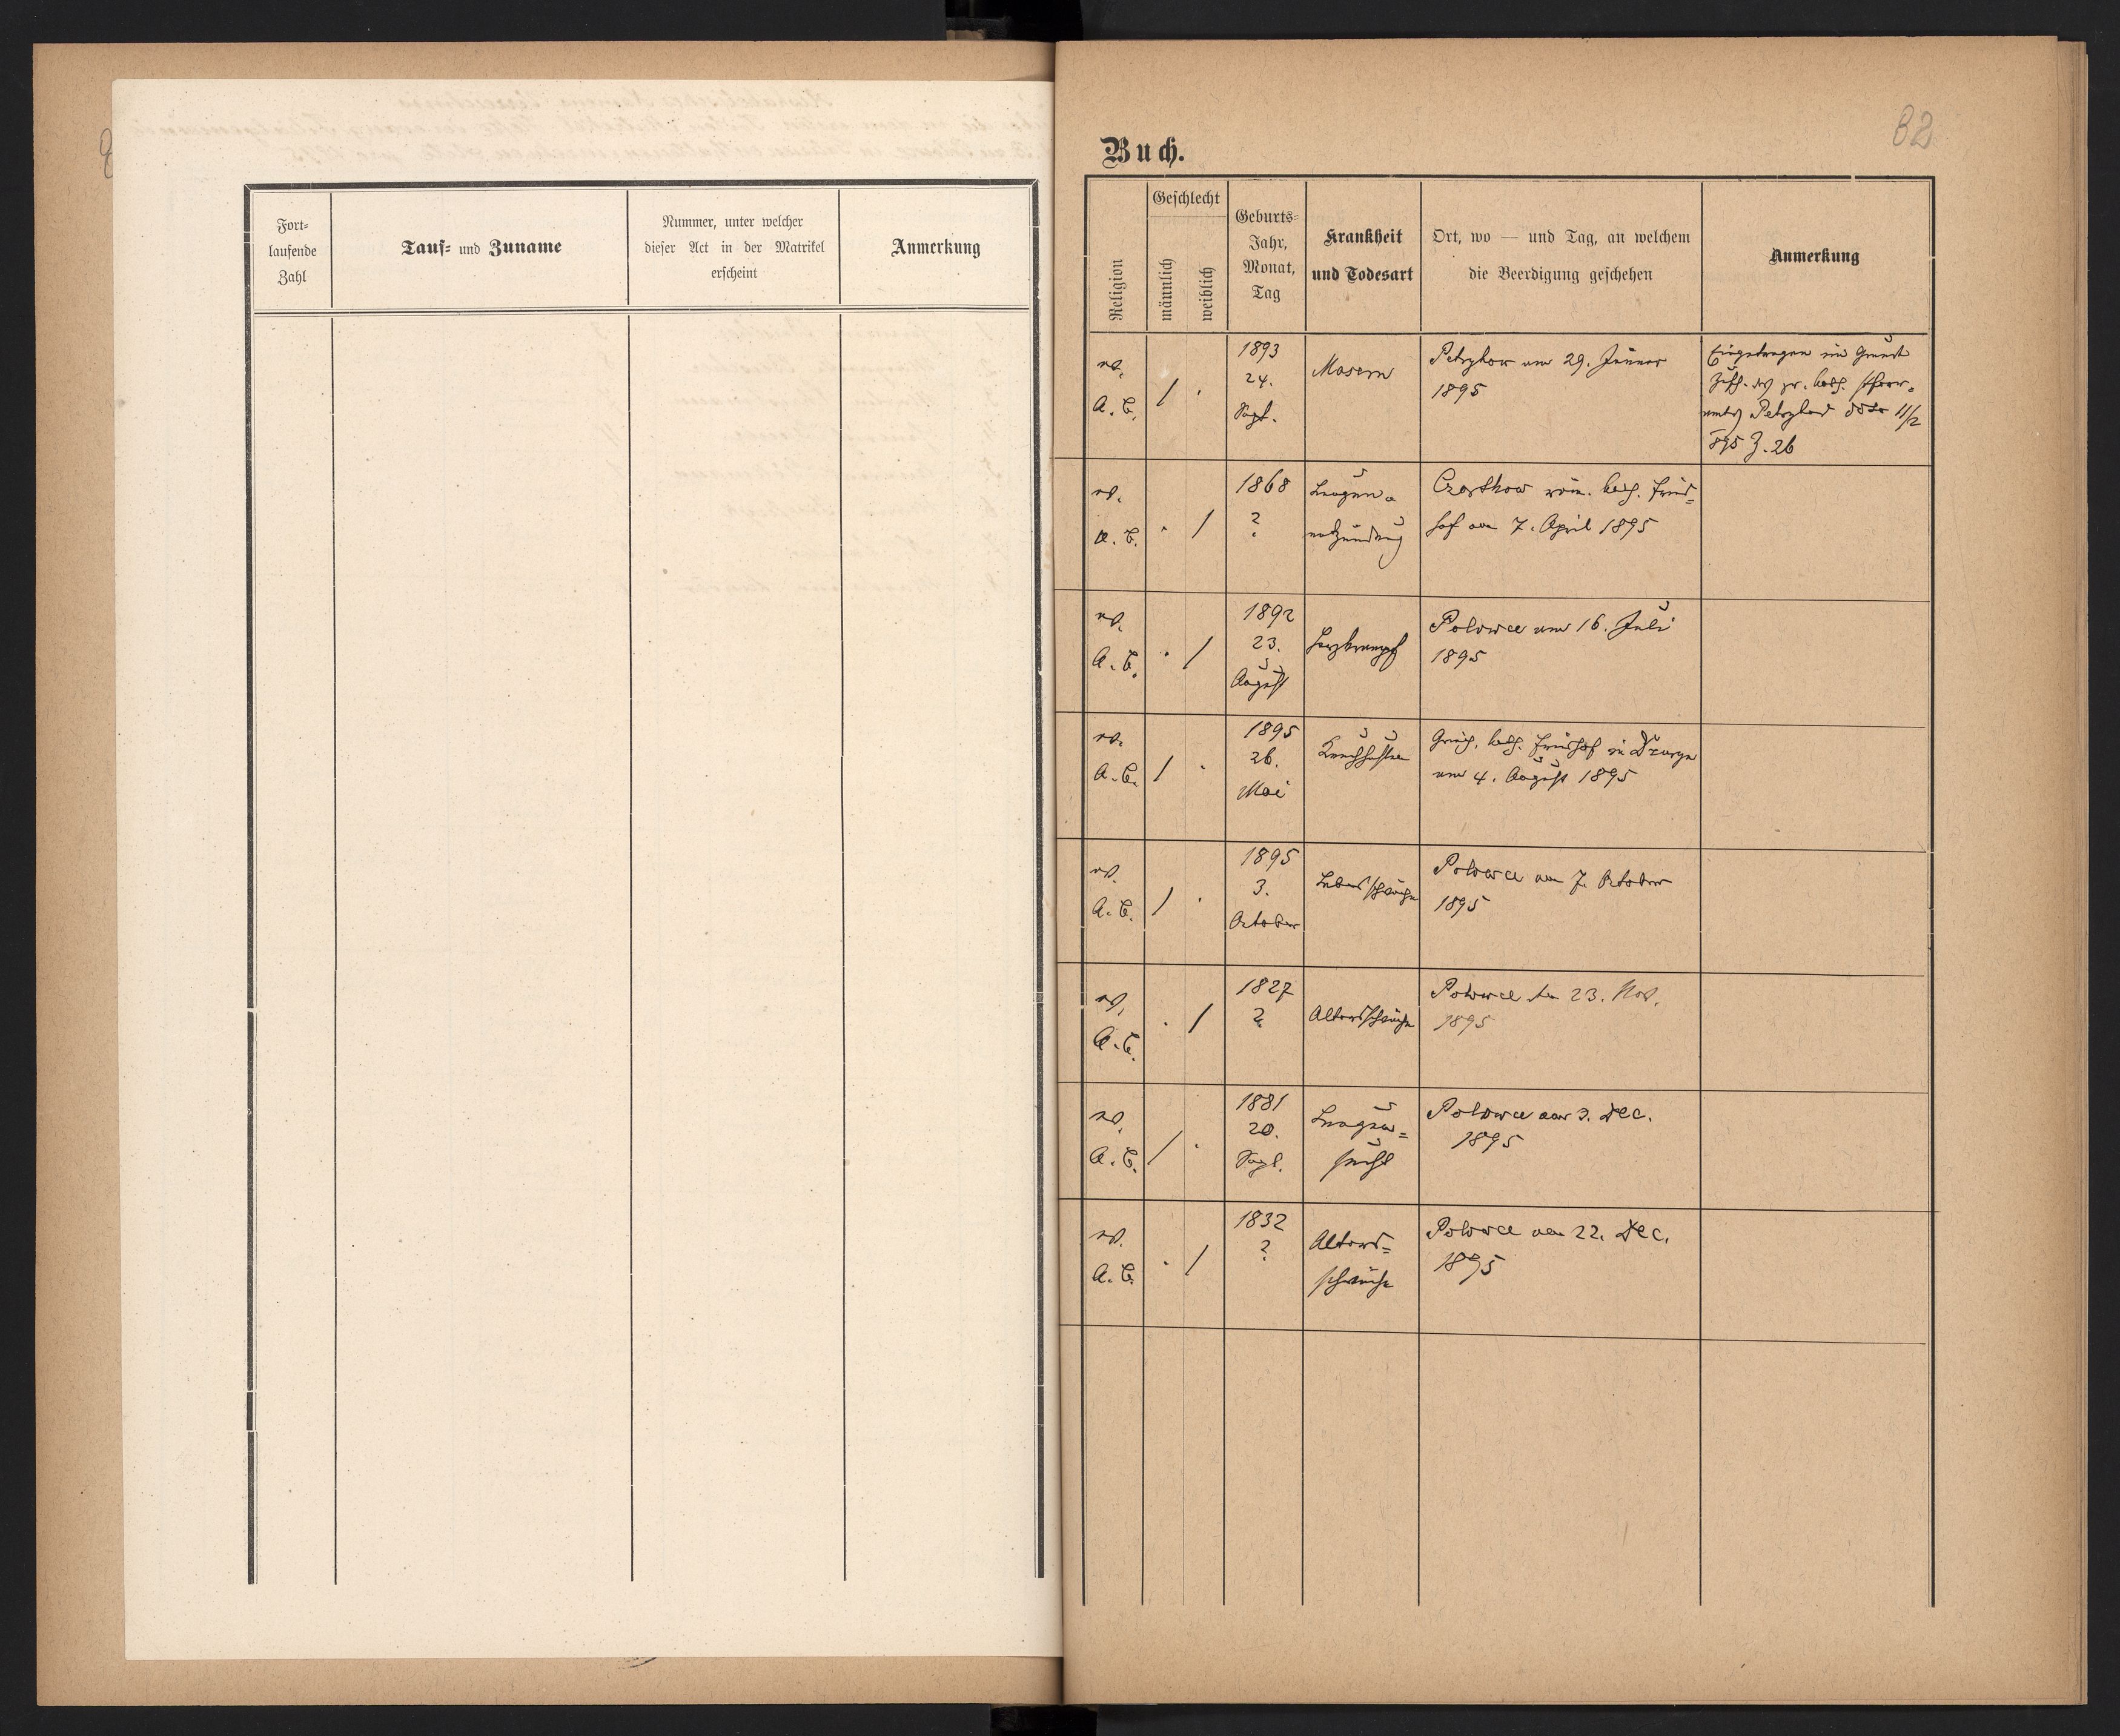 Fort-
laufende
Zahl
Tauf- und Zuname
Nummer, unter welcher
dieser Act in der Matrikel
erscheint
Anmerkung
82
Buch.
Religion
Geschlecht
männlich
weiblich
Geburts-
Jahr,
Monat,
Tag
Krankheit
und Todesart
Ort, wo — und Tag, an welchem
die Beerdigung geschehen
Anmerkung
ev.
A. C.
/ .
1893
24.
Sept.
Masern
am 29. Jänner
1895
Eingetragen im Grunde
Zusch. des gr. kath. Pfarr-
amtes ddto 11/2
895 Z. 26
ev.
A. C.
. /
1868
?
Lungen
entzündung
röm. kath. Fried-
hof am 7. April 1895
ev.
A. C.
. /
1892
23.
August
Herzkrampf
Polowce am 16. Juli
1895
ev.
A. C.
/ .
1895
26.
Mai
Keuchhusten
Griech. kath. Friedhof in
am 4. August 1895
ev.
A. C.
/ .
1895
3.
October
Lebensschwäche
Polowce am 7. October
1895
ev.
A. C.
. /
1827
?
Altersschwäche
Polowce den 23. Nov.
1895
ev.
A. C.
/ .
1881
20.
Sept.
Lungen=
sucht
Polowce am 3. Dec.
1895
ev.
A. C.
. /
1832
?
Alters=
schwäche
Polowce am 22. Dec.
1895